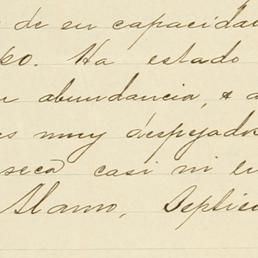 de su capacidad
Ha estado
abundancia, & a
muy despejado
seca casi ni en
Alamo, Septie